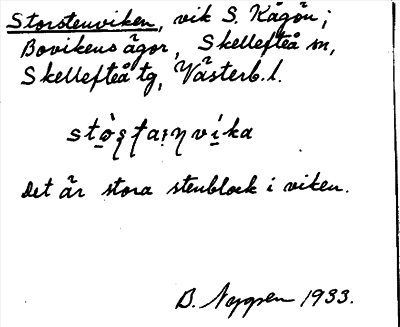 Storstenviken, vik S. Kågön;
Bovikens ägor, Skellefteå m,
Skellefteå tg, Västerb. l.
Det är stora stenblock i viken.
B. 1933.